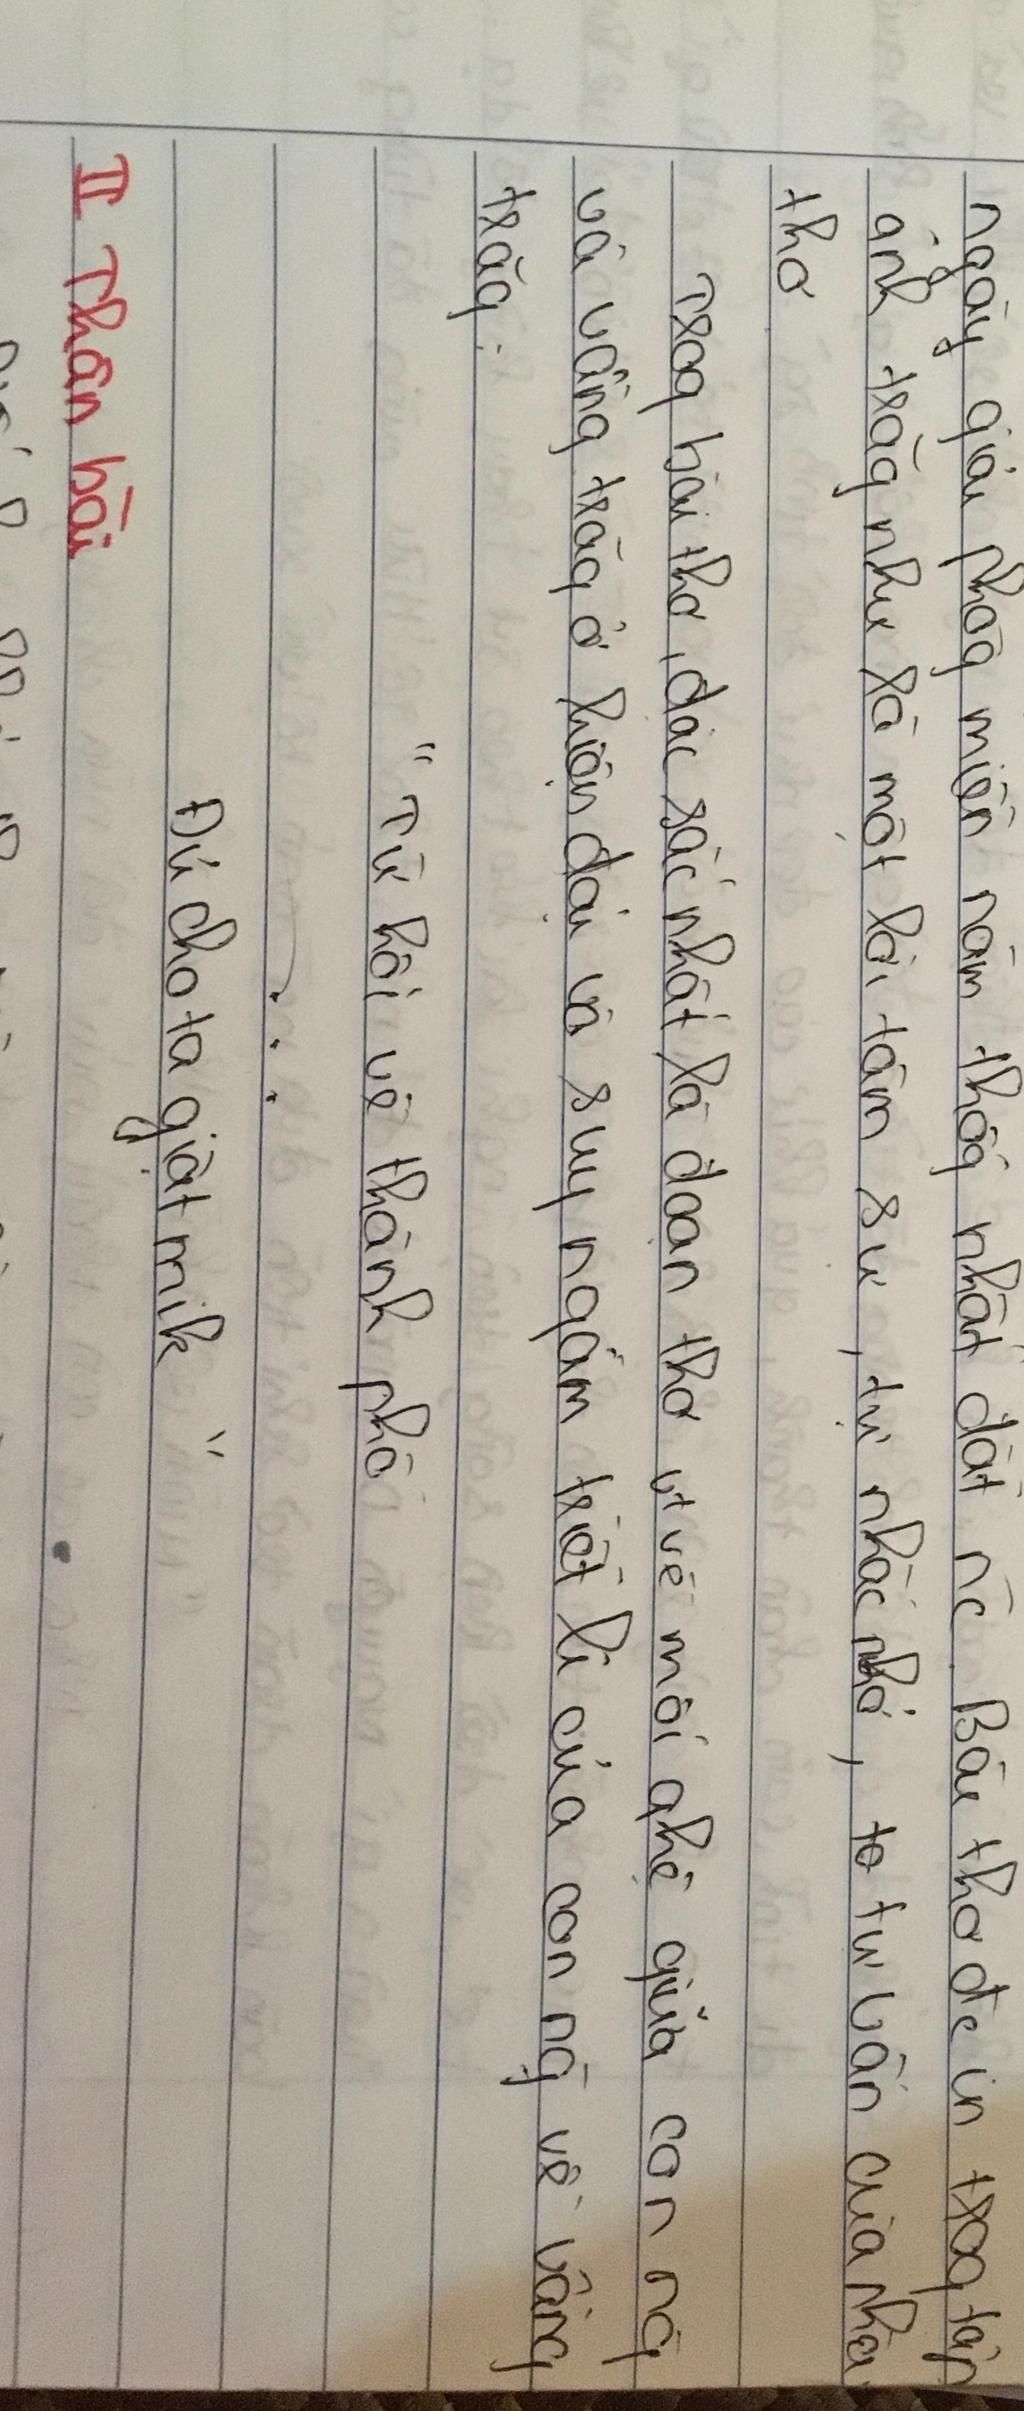 ngày giải phóg miền nam thốg nhất đất nc. Bài thơ đc in trog tập
ánh trăg như là một lời tâm sự, tự nhắc nhở, to tự vấn của nhà
thơ
Trog bài thơ, đặc sắc nhất là đoạn thơ vt về mối qhệ giữa con ng
và vầng trăg ở hiện đại và suy ngẫm triết lí của con ng về vầng
trăg:
" Từ hồi về thành phố
. . .
Đủ cho ta giật mik "
II Thân bài